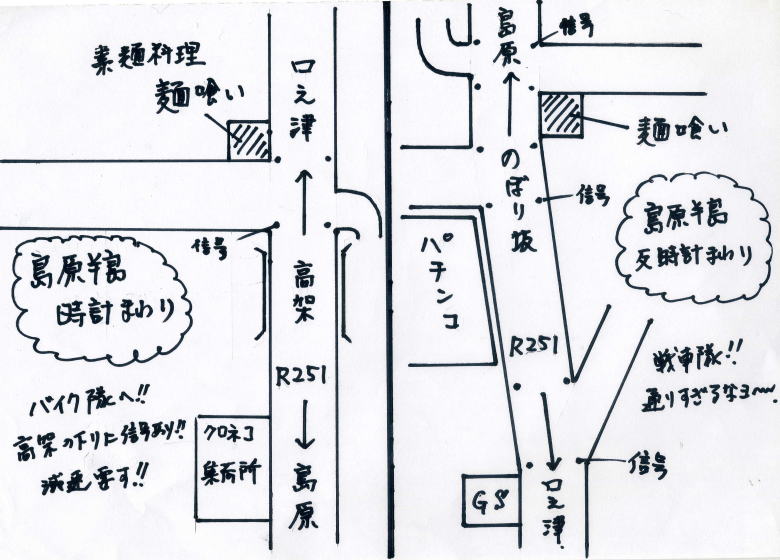 素麺料理
麺喰い
口之津
信号
高架
島原半島
時計まわり
R251
バイク隊へ!!
高架の下りに信号あり!!
減速要す!!
クロネコ
集荷所
島原
島原
信号
麺喰い
のぼり坂
信号
島原半島
反時計まわり
パチンコ
R251
戦車隊!!
通りすぎるなヨ〜.
信号
GS
口之津